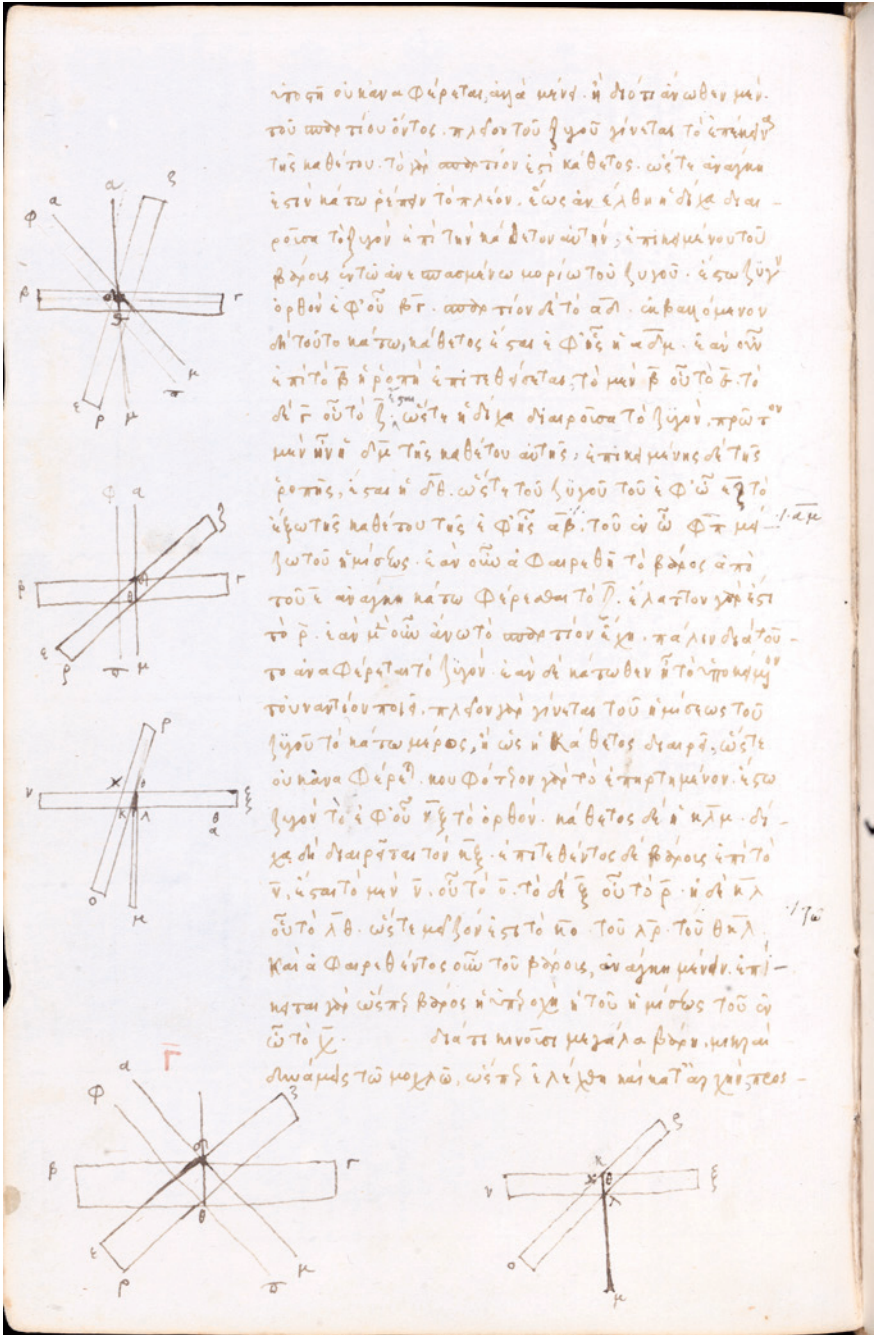 ὑποστῇ οὐκ ἀναφέρεται, ἀλλὰ μένει. ἢ διότι ἄνωθεν μὲν
τοῦ σπαρτίου ὄντος. πλεῖον τοῦ ζυγοῦ γίνεται τὸ ἐπέκεινα
τῆς καθέτου. τὸ γὰρ σπαρτίον ἐστὶ κάθετος. ὥστε ἀνάγκη
ἐστὶν κάτω ῥέπειν τὸ πλέον, ἕως ἂν ἔλθη ἡ δίχα διαι -
ροῦσα τὸ ζυγὸν ἐπὶ τὴν κάθετον αὐτήν, ἐπικειμένου τοῦ
βάρους ἐν τῷ ἀνεσπασμένω μορίω τοῦ ζυγοῦ. ἔστω ζυγὸν
ὀρθὸν ἐφ' οὗ β̅γ̅. σπαρτίον δὲ τὸ α̅δ̅. ἐκβαλλόμενον
δὴ τοῦτο κάτω, κάθετος ἔσται ἐφ' ἧς ἡ α̅δ̅μ̅. ἐὰν οὖν
ἐπὶ τὸ β̅ ἡ ῥοπὴ ἐπιτεθήσεται, τὸ μὲν β̅ οὗ τὸ ε̅. τὸ
δὲ γ̅ οὗ τὸ ζ̅. ἔσται ὥστε ἡ δίχα διαιροῦσα τὸ ζυγὸν, πρῶτον
μὲν ἦν ἡ δ̅μ̅ τῆς καθέτου αὐτῆς, ἐπικειμένης δὲ τῆς
ῥοπῆς, ἔσται ἡ δ̅θ̅. ὥστε τοῦ ζυγοῦ τοῦ ἐφ' ᾧ ε̅ζ̅ τὸ
ἔξω τῆς καθέτου τῆς ἐφ' ἧς α̅β̅. τοῦ ἐν ᾧ φ̅π̅ μεῖ - α̅μ̅
ζω τοῦ ἡμίσεως. ἐὰν οὖν ἀφαιρεθῆ τὸ βάρος ἀπὸ
τοῦ ε̅ ἀνάγκη κάτω φέρεσθαι τὸ ζ̅. ἔλαττον γάρ ἐστι
τὸ ε̅. ἐὰν μὲν οὖν ἄνω τὸ σπαρτίον ἔχη. πάλιν διὰ τοῦ -
το ἀναφέρεται τὸ ζυγόν. ἐὰν δὲ κάτωθεν ᾖ τὸ ὑποκείμενον
τοὐναντίον ποιεῖ. πλεῖον γὰρ γίνεται τοῦ ἡμίσεως τοῦ
ζυγοῦ τὸ κάτω μέρος, ἢ ὡς ἡ κάθετος διαιρεῖ, ὥστε
οὐκ ἀναφέρεται. κουφότερον γὰρ τὸ ἐπηρτημένον. ἔστω
ζυγὸν τὸ ἐφ' οὗ ν̅ξ̅ τὸ ὀρθόν. κάθετος δὲ ἡ κ̅λ̅μ̅. δί -
χα δὴ διαιρεῖται τὸν ν̅ξ̅. ἐπιτεθέντος δὲ βάρους ἐπὶ τὸ
ν̅, ἔσται τὸ μὲν ν̅. οὗ τὸ ο̅. τὸ δὲ ξ̅ οὗ τὸ ρ̅. ἡ δὲ κ̅λ̅
οὗ τὸ λ̅θ̅. ὥστε μεῖζόν ἐστι τὸ κ̅ο̅. τοῦ λ̅ρ̅. τοῦ θ̅κ̅λ̅.
καὶ ἀφαιρεθέντος οὖν τοῦ βάρους, ἀνάγκη μένειν. ἐπί -
κειται γὰρ ὥσπερ βάρος ἡ ὑπεροχὴ ἡ τοῦ ἡμίσεως τοῦ ἐν
ᾧ τὸ χ̅. διάτι κινοῦσι μεγάλα βάρη, μικραὶ
δυνάμεις τῷ μοχλῷ, ὥσπερ ἐλέχθη καὶ κατ' ἀρχήν, προσ -
Γ̅